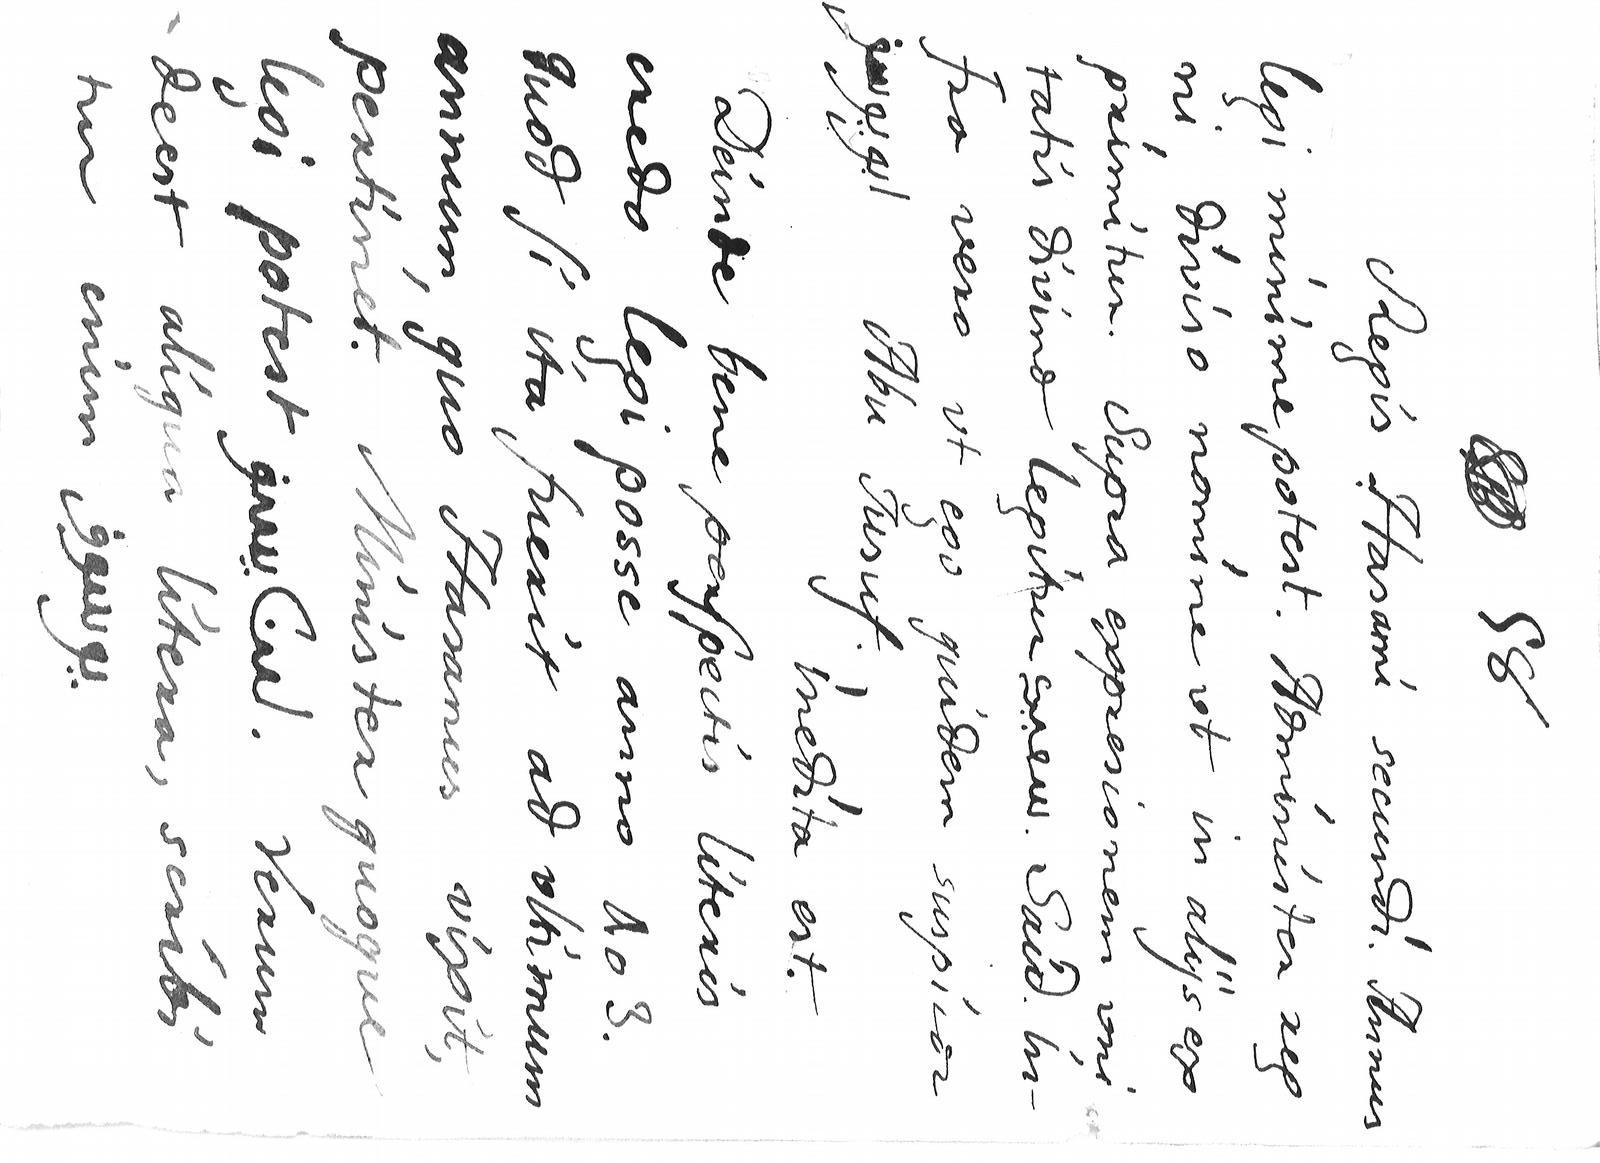 58
Regis Hasani secundi. Annus
legi minime potest. Administer reg
ni, diviso nomine vt in alijs ex
primitur. Supra expresionem vni
tatis divino legitur سعيد. Saíd. In-
fra vero vt ego quidem suspicor
Abu Jusuf.
Inedita est.
Deinde bene perspectis literis
credo legi posse anno 403.
quod si ita fuerit ad vltimum
annum, quo Hasanus vixit,
pertinet. Minister quoque
legi potest Verum
deest aliqua litera, scribi
tur enim